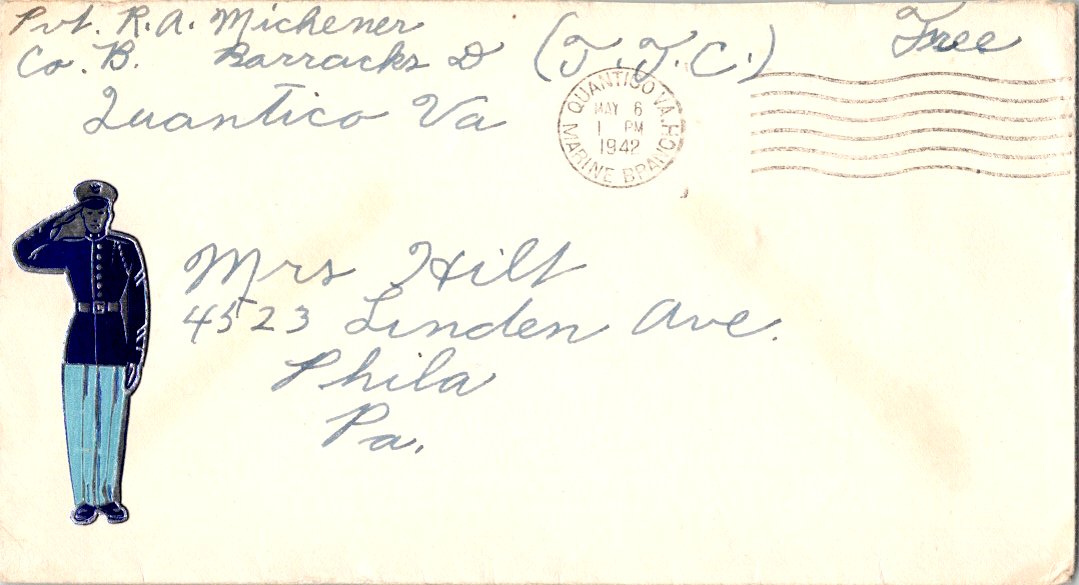 Pvt. R. A. Michener
Free
Co. B. Barracks D (T.T.C.)
Quantico Va
QUANTICO VA.
MAY 6
1 PM
1942
MARINE BRANCH
Mrs Hilt
4523 Linden Ave.
Phila
Pa.